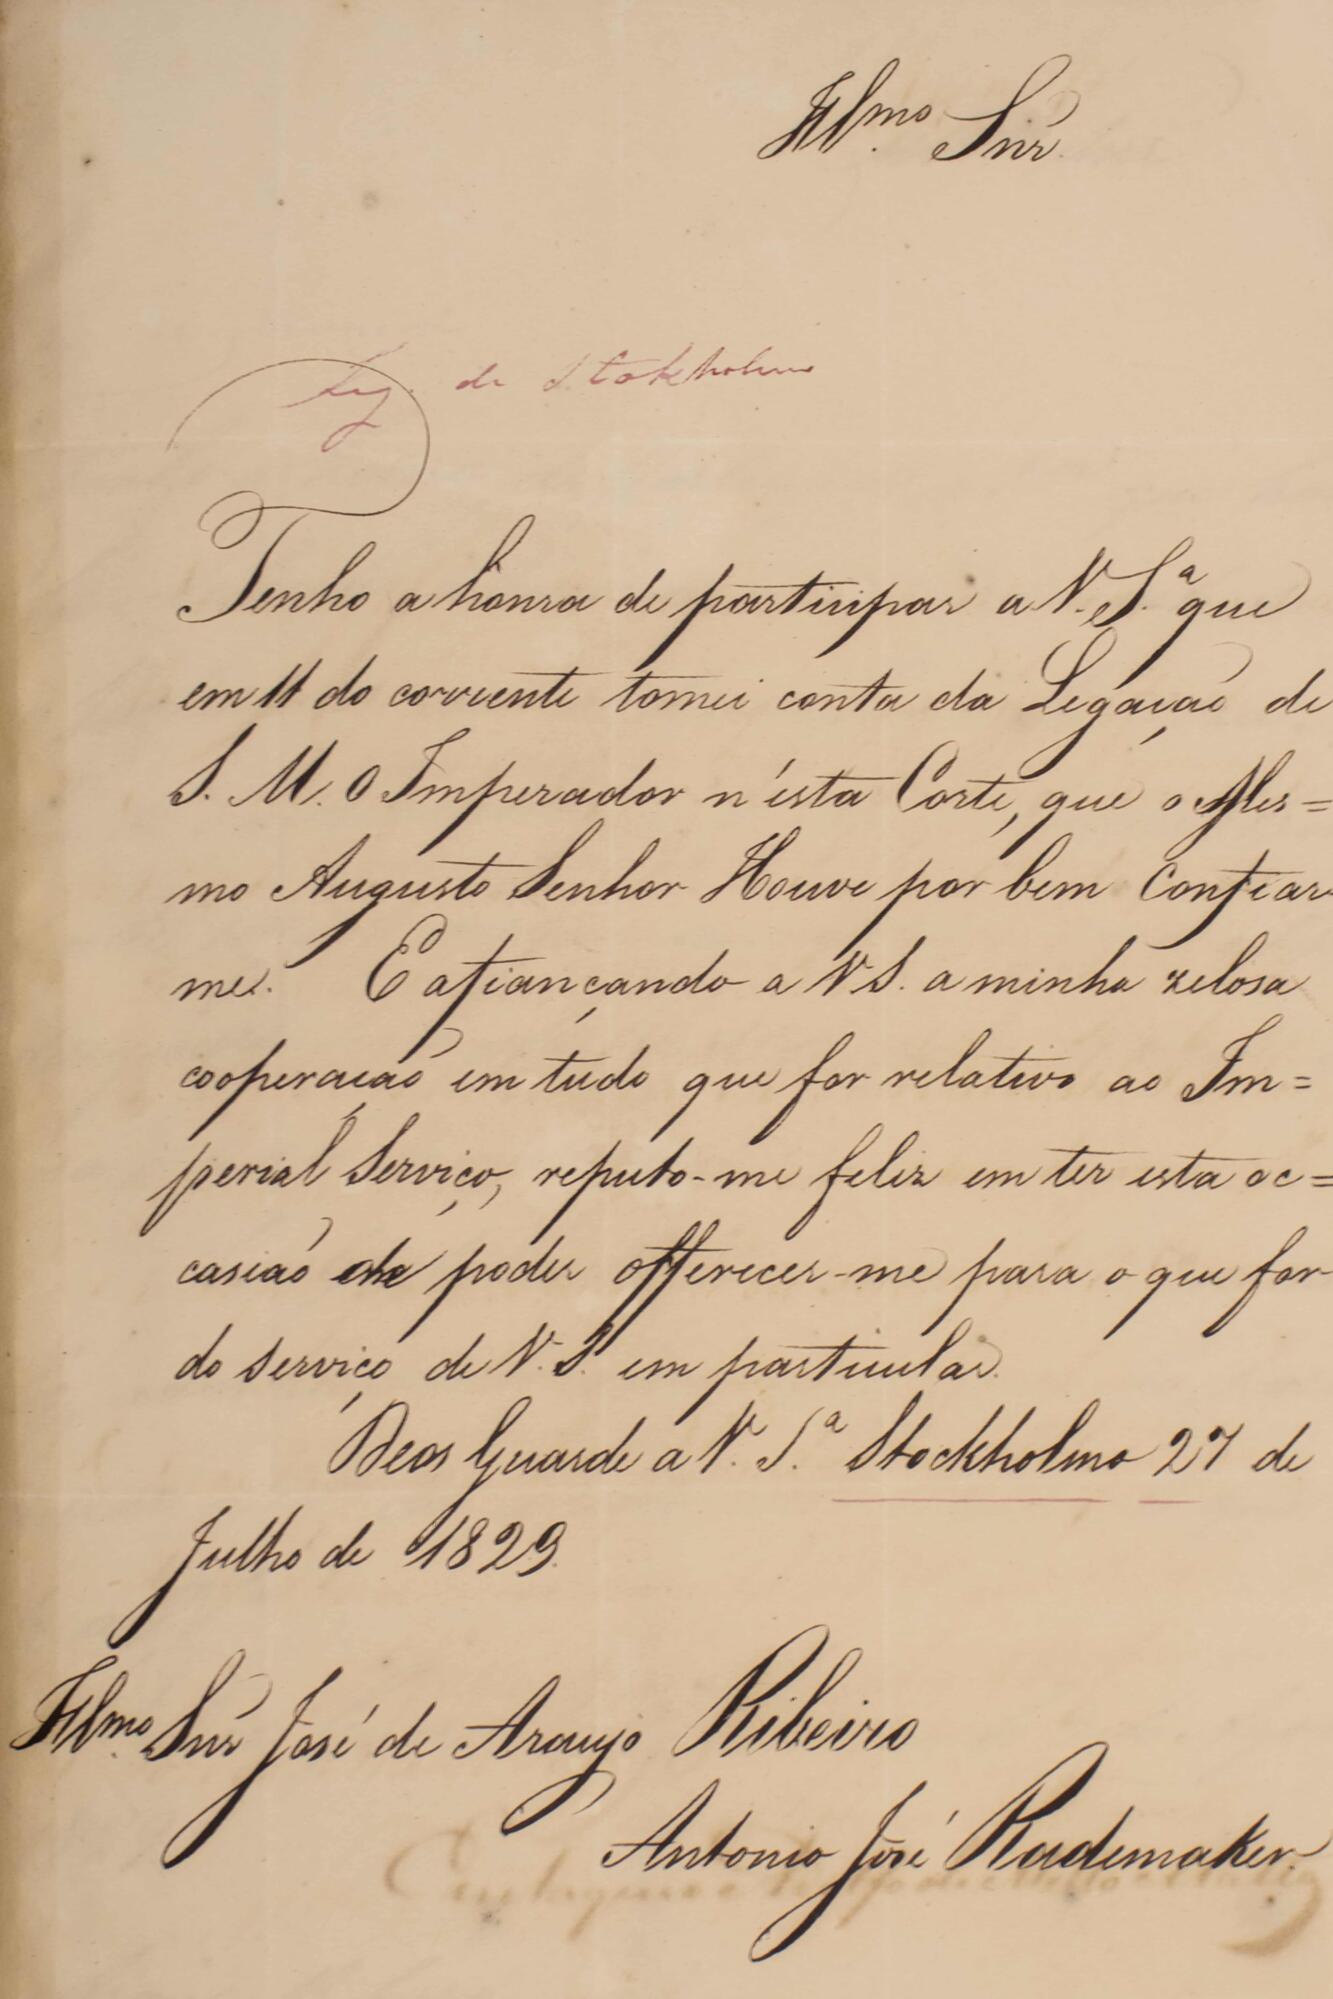 Illmo Snr
Leg. de Stokholmo
Tenho a honra de participar a V. S.ª que
em 11 do corrente tomei conta da Legação de
S. M. O Imperador n'ésta Corte, que o Mes=
mo Augusto Senhor Houve por bem Confiar
me. E afiançando a V S. a minha zelosa
cooperação em tudo que for relativo ao Im=
perial Serviço, reputo-me feliz em ter esta oc=
casião de poder offerecer-me para o que for
do serviço de V. S. em particular.
Deos Guarde a V. S.ª Stockholmo 27 de
Julho de 1829.
Illmo Snr José de Araujo Ribeiro
Antonio José Rademaker.